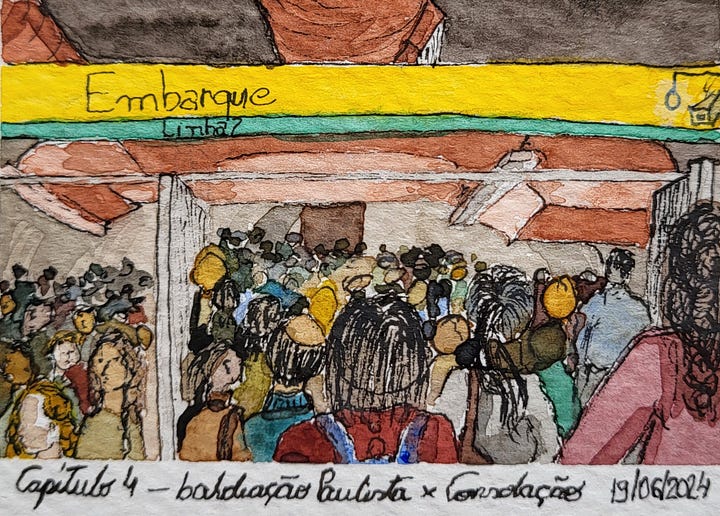 Embarque
Linha 2
Capítulo 4 – baldeação Paulista x Consolação 19/06/2024